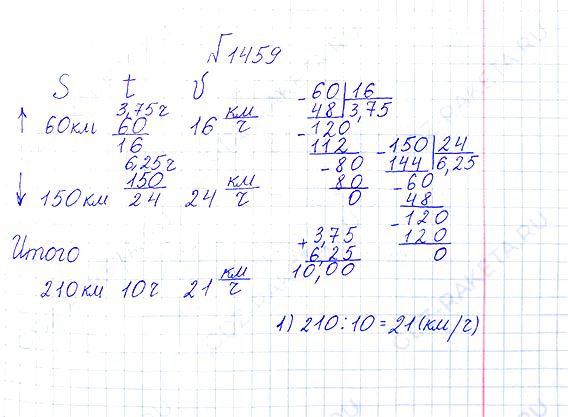 №1459
S t v
↑ 60км 3,75ч 60/16 16 км/ч
↓ 150км 6,25ч 150/24 24 км/ч
Итого
210км 10ч 21 км/ч
- 60 | 16
48 | 3,75
- 120
112
- 80
80
0
- 150 | 24
144 | 6,25
- 60
48
- 120
120
0
+ 3,75
6,25
10,00
1) 210:10=21(км/ч)